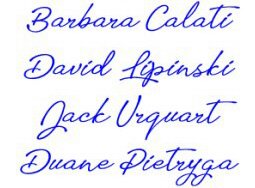 Barbara Calati
David Lipinski
Jack Urquart
Duane Pietryga